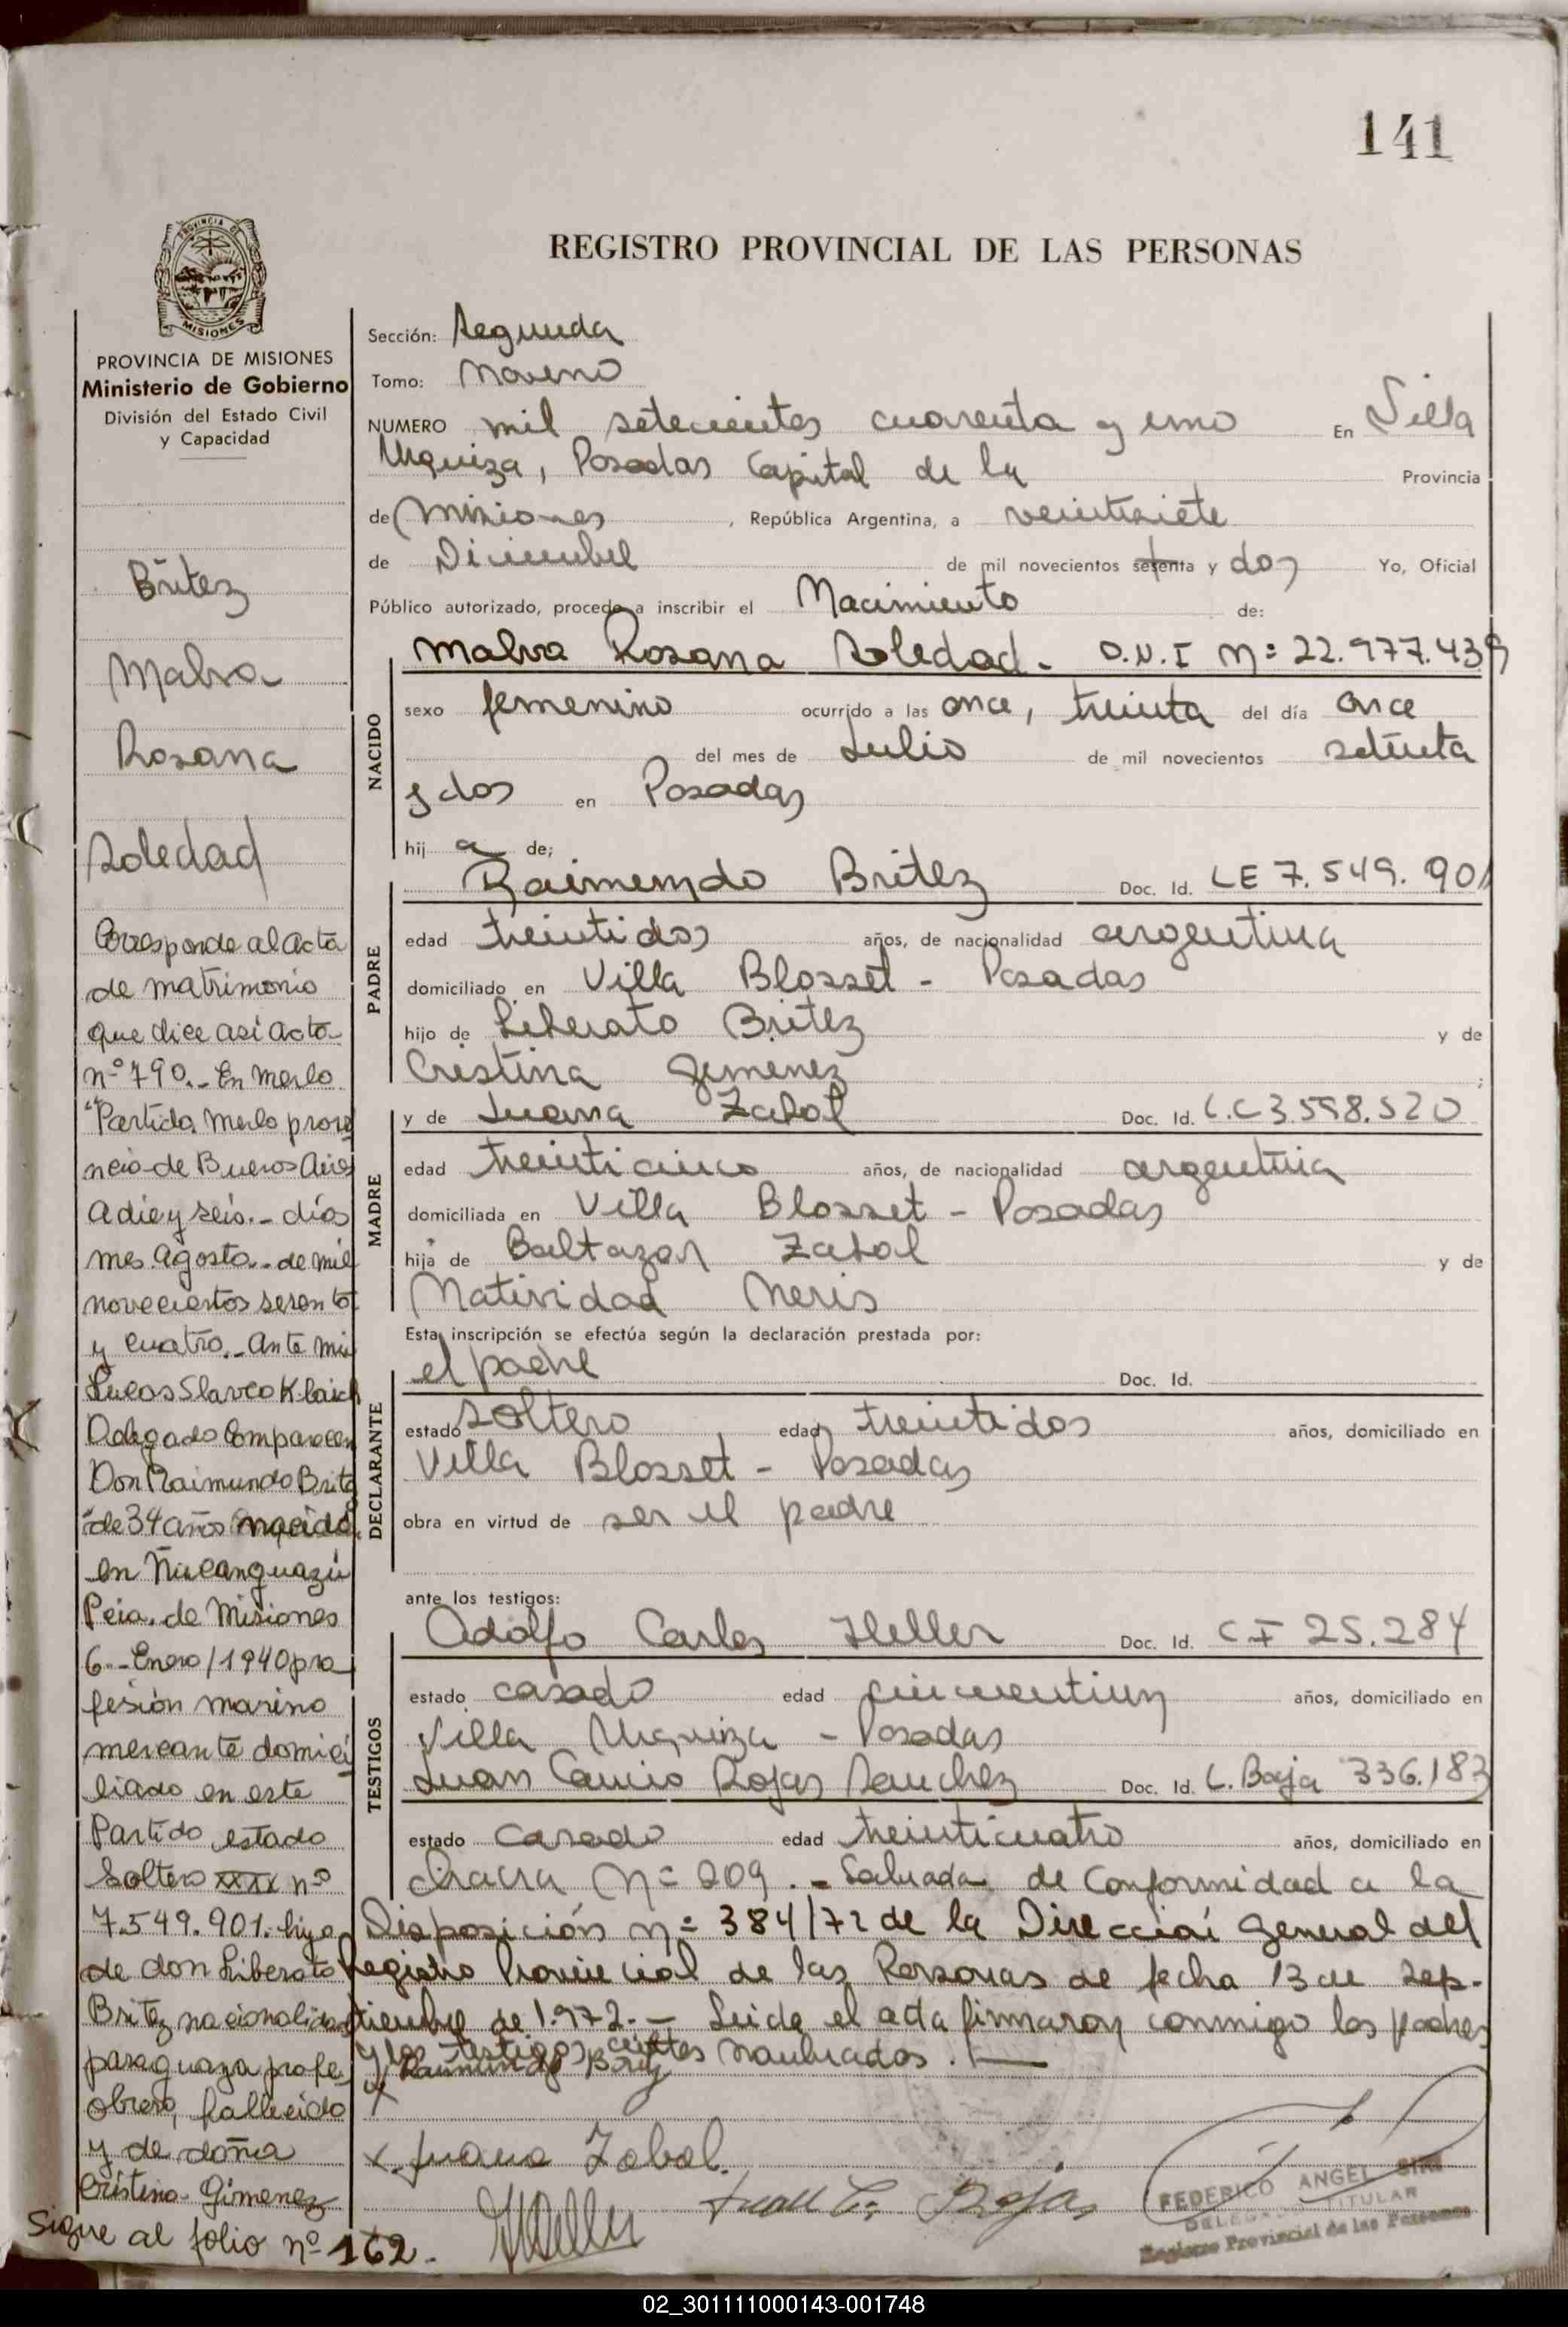 141
REGISTRO PROVINCIAL DE LAS PERSONAS
PROVINCIA DE MISIONES
Ministerio de Gobierno
División del Estado Civil
y Capacidad
Britez
Malva
Rosana
Soledad
Corresponde al acta
de matrimonio
que dice asi acta
nº 790.- En Merlo
Partido Merlo provi
ncia de Buenos Aires
a die y seis.- días
mes Agosto.- de mil
novecientos setenta
y cuatro.- Ante mi
Lucas Slavco
Delegado Comparecen
Don Raimundo Britez
de 34 años nacido
en
Pcia. de Misiones
6.-Enero/1940 pro
fesión marino
mercante domici
liado en este
Partido estado
Soltero xxxx nº
7.549.901. hijo
de don Liberato
Britez nacionalidad
paraguaya profe
obrero, fallecido
y de doña
Cristina Gimenez
Sigue al folio nº 162.
Sección: Segunda
Tomo: Noveno
NUMERO mil setecientos cuarenta y uno En Villa
Urquiza, Posadas Capital de la Provincia
de Misiones, República Argentina, a veintisiete
de Diciembre de mil novecientos setenta y dos Yo, Oficial
Público autorizado, procedo a inscribir el Nacimiento de:
NACIDO
Malva Rosana Soledad - D.N.I Nº 22.977.439
sexo femenino ocurrido a las once, treinta del día once
del mes de Julio de mil novecientos setenta
y dos en Posadas
hij a de;
PADRE
Raimundo Britez Doc. Id. LE 7.549.901
edad treintidos años, de nacionalidad argentina
domiciliado en Villa Blosset - Posadas
hijo de Liberato Britez y de
Cristina Gimenez;
MADRE
y de Juana Zabol Doc. Id. L.C 3.558.520
edad treinticinco años, de nacionalidad argentina
domiciliada en Villa Blosset - Posadas
hija de Baltazar Zabol y de
Natividad Neris
Esta inscripción se efectúa según la declaración prestada por:
DECLARANTE
el padre Doc. Id.
estado soltero edad treintidos años, domiciliado en
Villa Blosset - Posadas
obra en virtud de ser el padre
ante los testigos:
TESTIGOS
Adolfo Carlos Heller Doc. Id. C I 25.284
estado casado edad cincuentiun años, domiciliado en
Villa Urquiza - Posadas
Juan Cancio Rojas Sanchez Doc. Id. C. Baja 336.183
estado casado edad treinticuatro años, domiciliado en
chacra Nº 209.- Labrada de Conformidad a la
Disposición nº 384/72 de la Direccioń General del
Registro Provincial de las Personas de fecha 13 de sep-
tiembre de 1.972.- Leida el acta firmaron conmigo los padres
y los testigos nombrados.-
Raimundo Britez
x Juana Zabol.
AHeller
Juan C. Rojas
FEDERICO ANGEL
DELEGADO TITULAR
Registro Provincial de las Personas
02_301111000143-001748